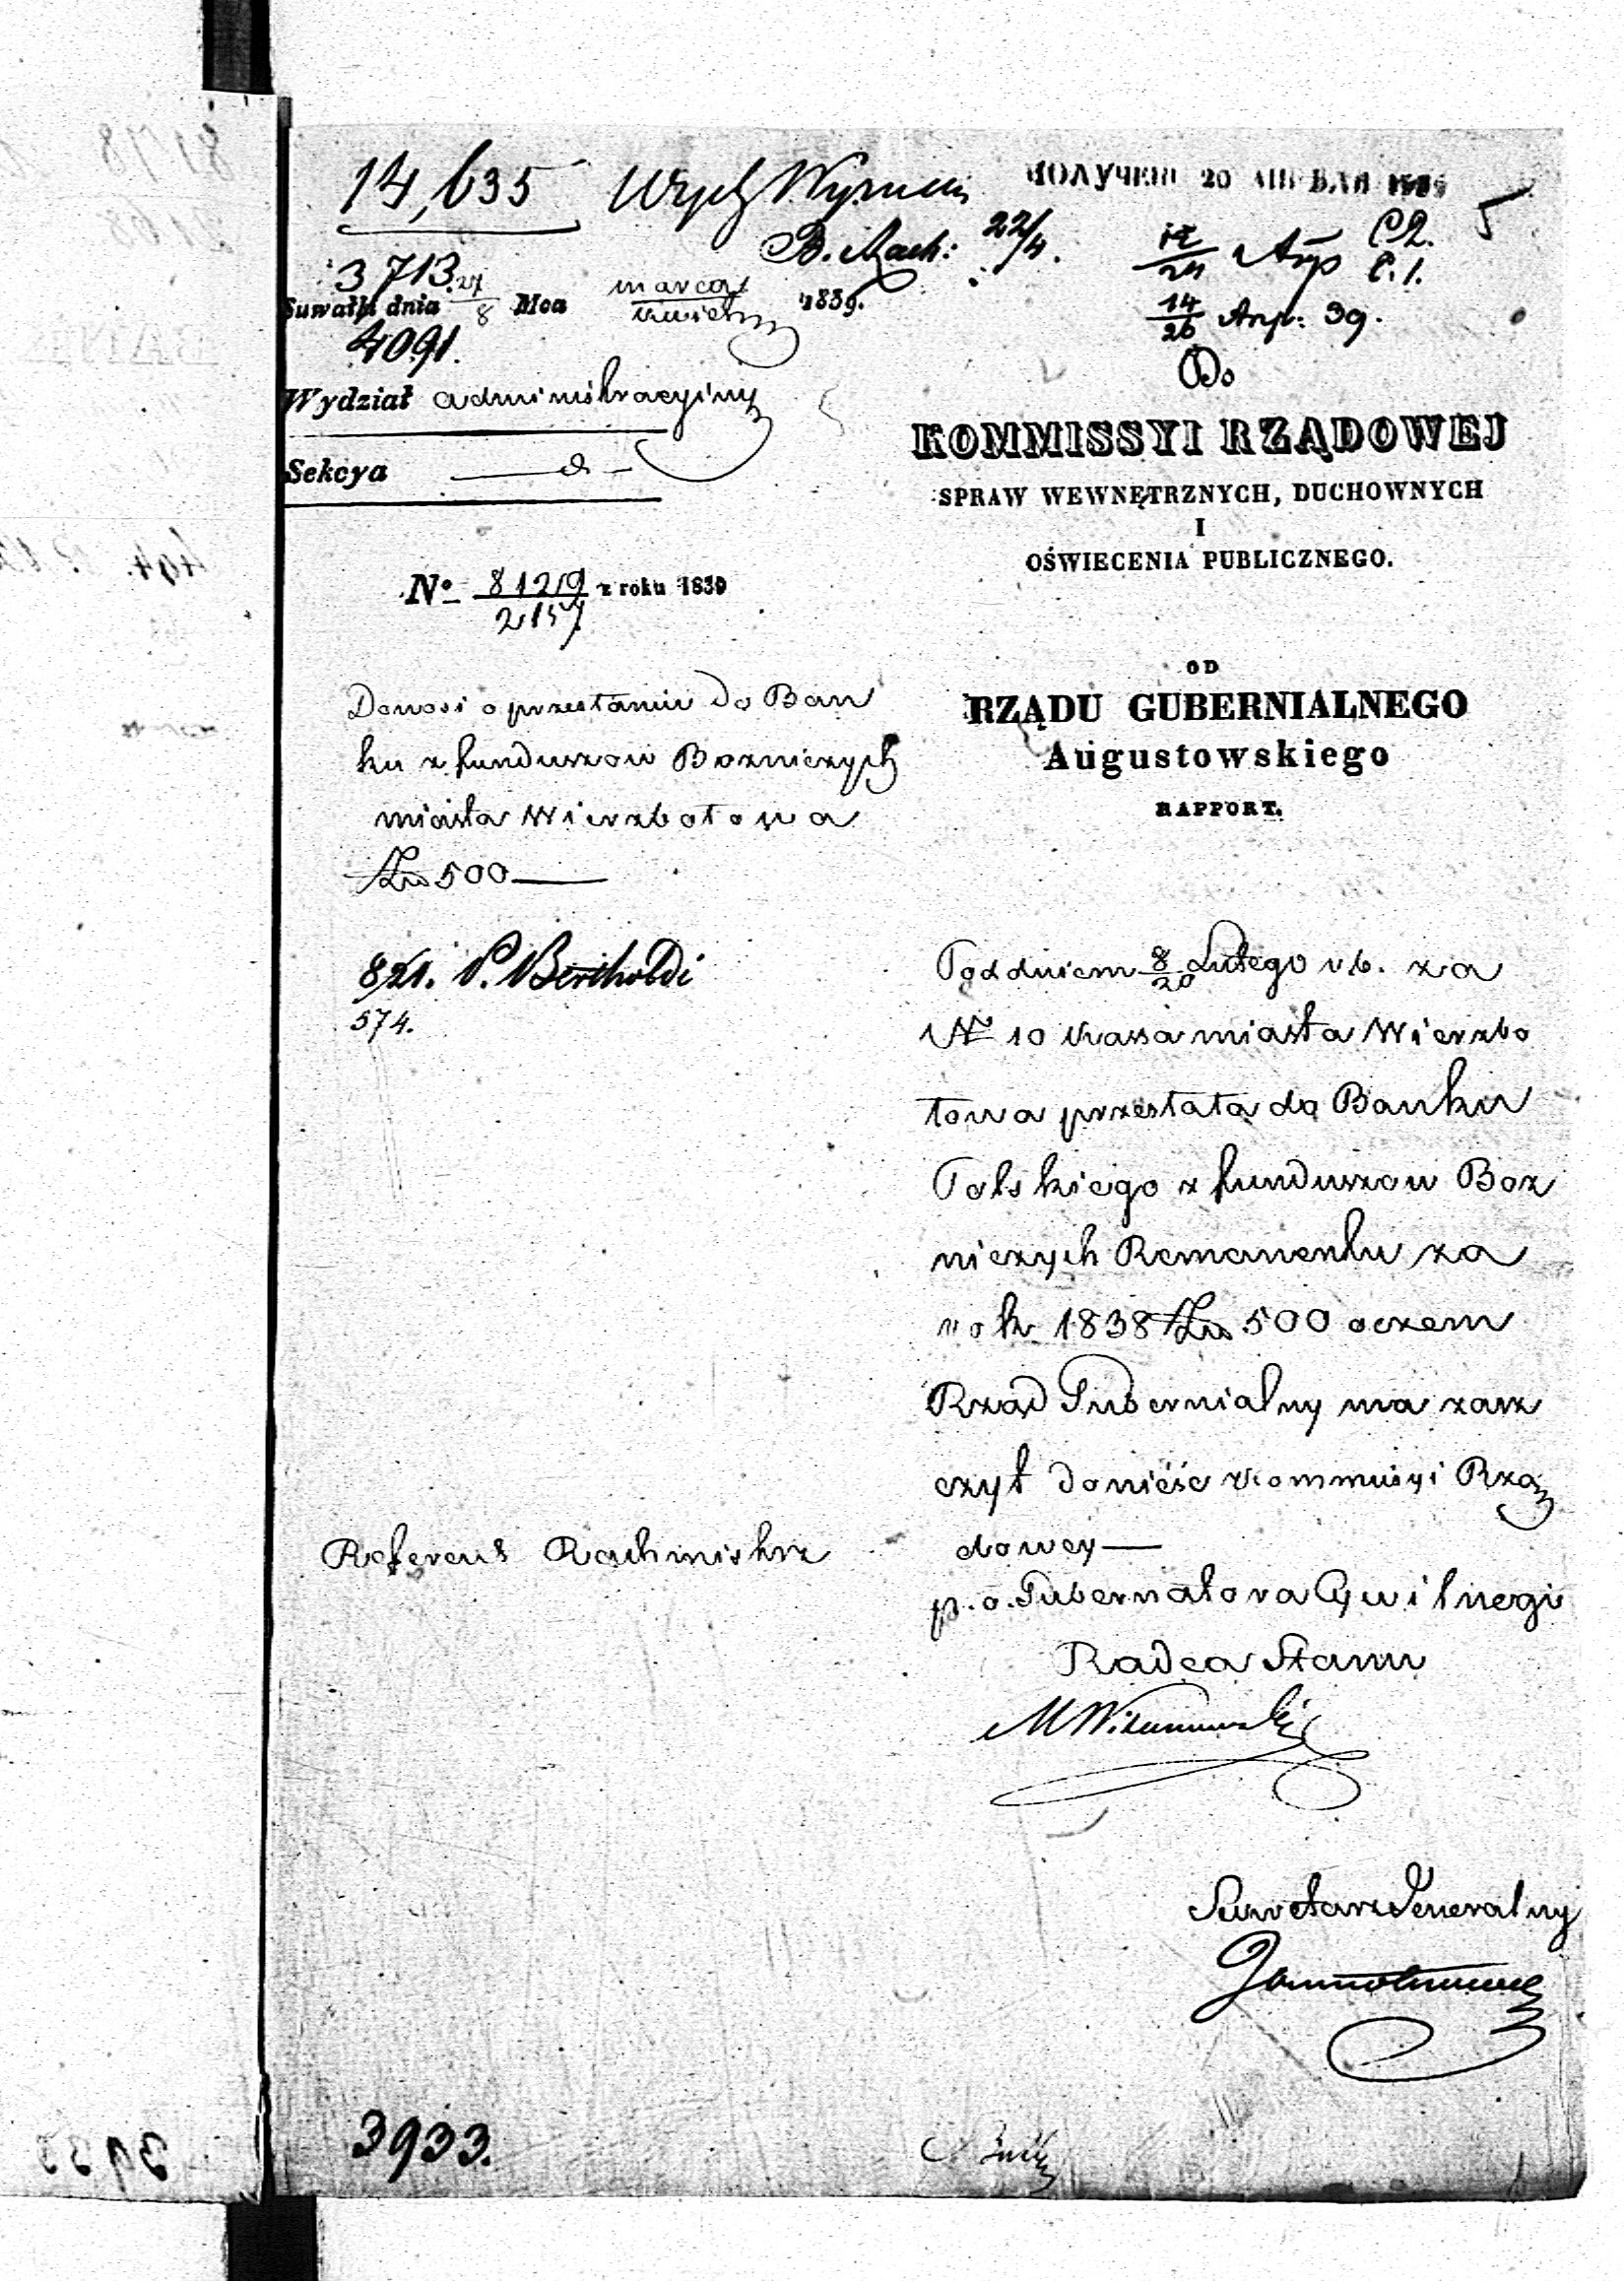 14,635
ПОЛУЧЕН 20 АПРѢЛЯ
5
B. Rach: 22/4.
12/24 Апр
14/26 Апр: 39.
3713.
Suwałki dnia 27/8 Mca marca/kwietn 1839.
4091.
Wydział administracyiny
Sekcya
Do
KOMMISSYI RZĄDOWEJ
SPRAW WEWNĘTRZNYCH, DUCHOWNYCH
I
OŚWIECENIA PUBLICZNEGO.
No 81219/2157 z roku 1839
OD
RZĄDU GUBERNIALNEGO
Augustowskiego
RAPPORT.
Donosi o przesłaniu do Ban
ku z funduszow Bozniczych
miasta Wierzbołowa
Złp 500
821. P. Bertholdi
574.
Pod dniem 8/20 Lutego r.b. za
No 10 Kassa miasta Wierzbo
łowa przesłała do Banku
Polskiego z funduszow Boz
niczych Remanentu za
rok 1838 Złp 500 oczem
Rząd Gubernialny ma zasz
czyt donieść Kommissyi Rzą
dowey
p. o. Gubernatora Cywilnego
Radca Stanu
Referent Rachmistrz
Sekretarz Generalny
3933.